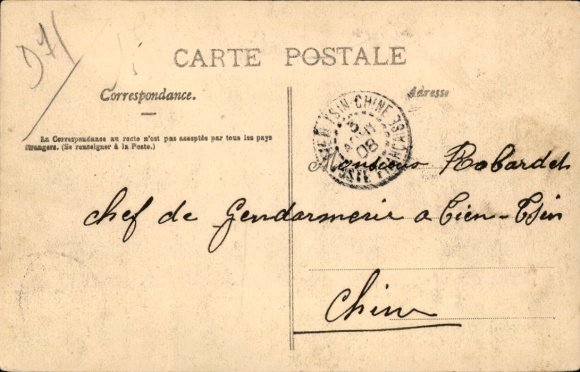 D71
CARTE POSTALE
Correspondance.
Adresse
La Correspondance au recto n'est pas acceptée par tous les pays
étrangers. (Se renseigner à la Poste.)
TSIN-CHINE
08
POSTE FRANCSE
Monsieur Robardet
chef de Gendarmerie a Tien-Tsin
Chine